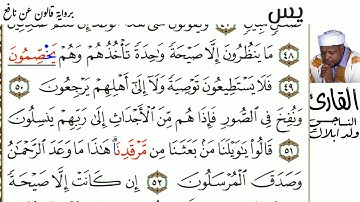 برواية قالون عن نافع
يس
مَا يَنظُرُونَ إِلَّا صَيْحَةً وَاحِدَةً تَأْخُذُهُمْ وَهُمْ يَخْصِّمُونَ
٤٨
فَلَا يَسْتَطِيعُونَ تَوْصِيَةً وَلَا إِلَىٰ أَهْلِهِمْ يَرْجِعُونَ ٥٠
٤٩
وَنُفِخَ فِي الصُّورِ فَإِذَا هُم مِّنَ الْأَجْدَاثِ إِلَىٰ رَبِّهِمْ يَنسِلُونَ
قَالُوا يَٰوَيْلَنَا مَنۢ بَعَثَنَا مِن مَّرْقَدِنَا هَٰذَا مَا وَعَدَ الرَّحْمَٰنُ
وَصَدَقَ الْمُرْسَلُونَ ٥٢ إِن كَانَتْ إِلَّا صَيْحَةً
القارئ
الناجي
ولد ابلال